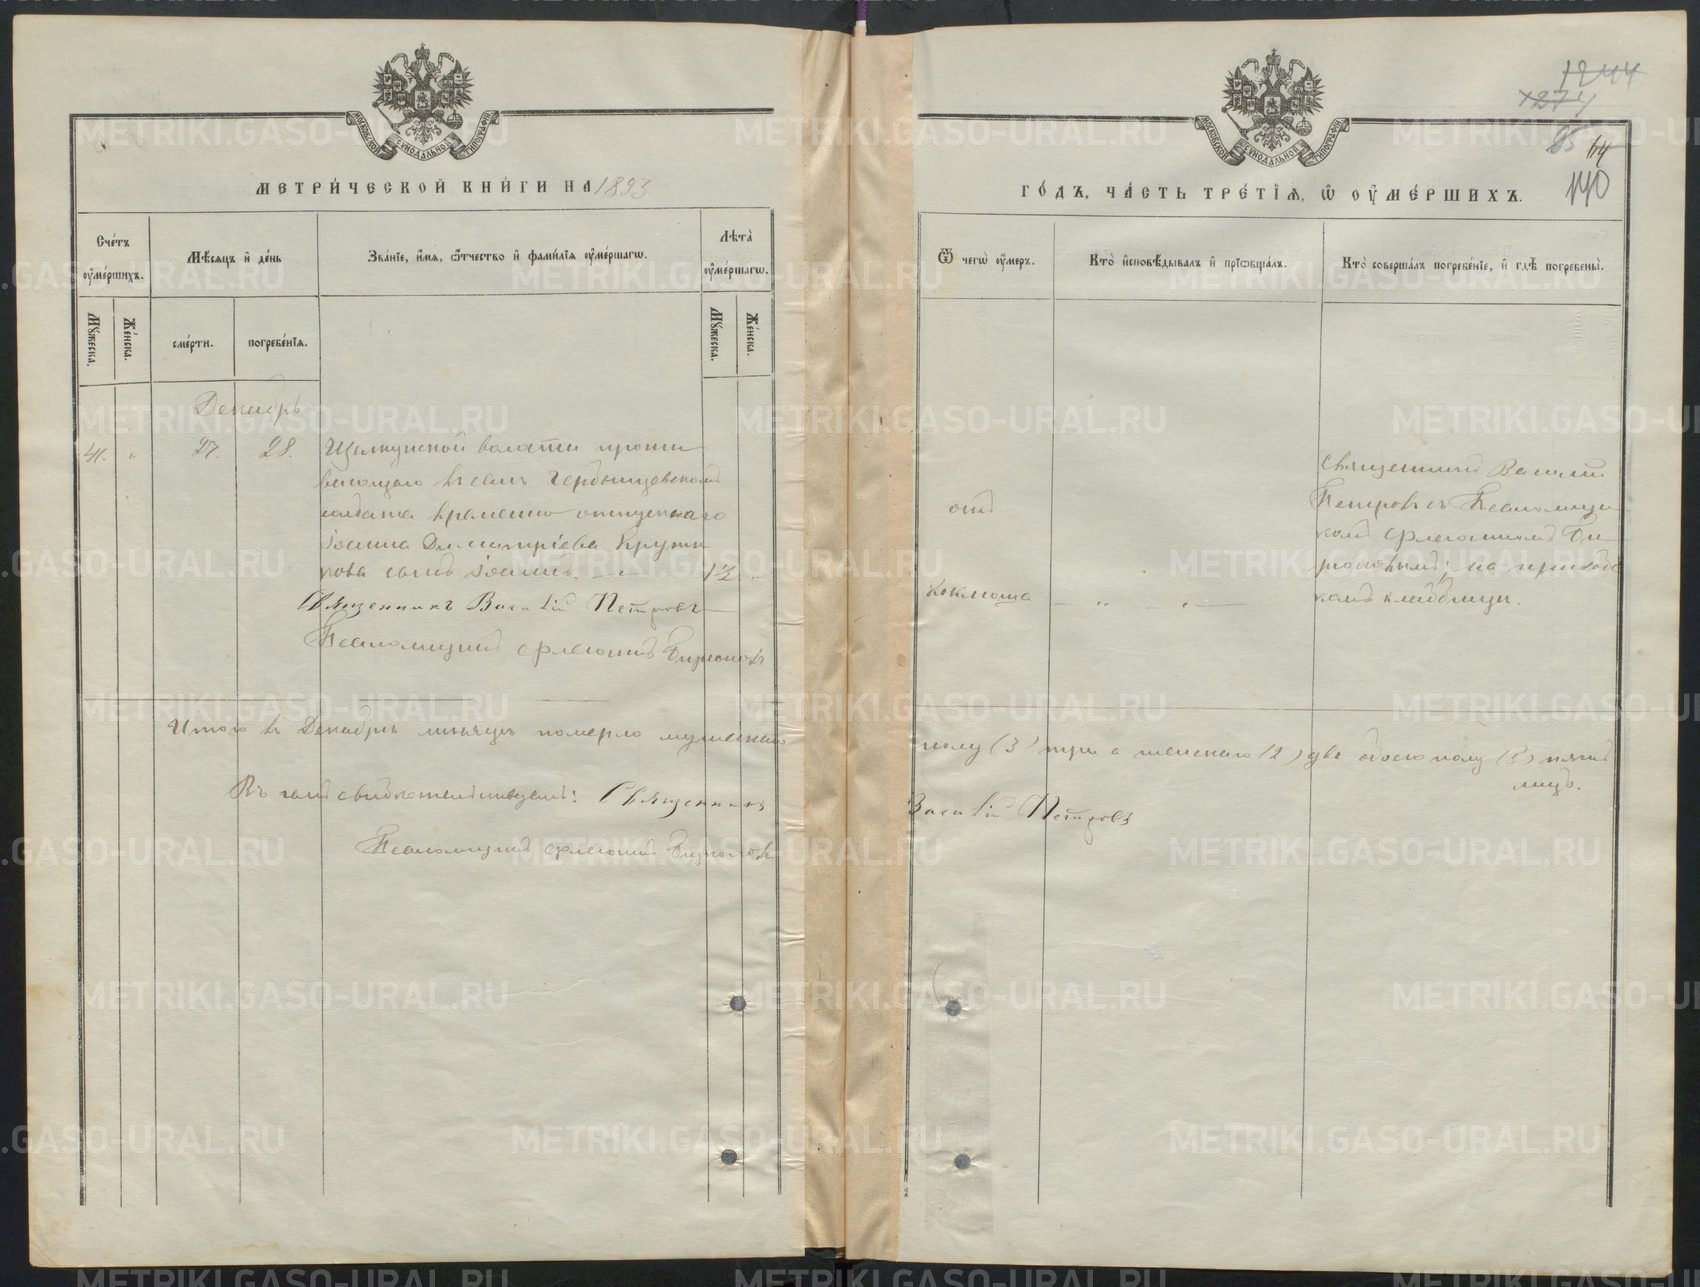 МОСКОВСКОЙ СѴНОДАЛЬНОЙ ТИПОГРАФІИ
МЕТРИ́ЧЕСКОЙ КНИ́ГИ НА 1893
Сче́тъ ᲂу҆ме́ршихъ.
Мѣ́сяцъ и҆ де́нь
Зва́нїе, и҆́мя, ѻ҆́тчество и҆ фами́лїя ᲂу҆ме́ршагѡ.
Лѣта̀ ᲂу҆ме́ршагѡ.
Мꙋ́жеска.
Же́нска.
сме́рти.
погребе́нїя.
Мꙋ́жеска.
Же́нска.
Декабрь
41. „ 27. 28. волости прожи
вающаго въ селѣ
солдата временно отпускнаго
Іоанна Димитріева
сынъ Іоаннъ. 1½ „
Священникъ Василій Петровъ
Псаломщикъ
Итого въ Декабрѣ мѣсяцѣ померло мужескаго
Въ семъ свидѣтельствуемъ: Священникъ
Псаломщикъ
МОСКОВСКОЙ СѴНОДАЛЬНОЙ ТИПОГРАФІИ
1244
274
85 64
140
ГО́ДЪ, ЧА́СТЬ ТРЕ́ТЇЯ, Ѡ҆ ОУ҆МЕ́РШИХЪ.
Ѿ чегѡ̀ ᲂу҆́меръ.
Кто̀ и҆сповѣ́дывалъ и҆ прїѡбща́лъ.
Кто̀ соверша́лъ погребе́нїе, и҆ гдѣ̀ погребены̀.
отъ
коклюша
Священникъ Василій
Петровъ съ Псаломщи
комъ
на приход
комъ кладбищѣ.
полу (3) три а женскаго (2) два обоего полу (5) пять
лицъ.
Василій Петровъ
METRIKI.GASO-URAL.RU